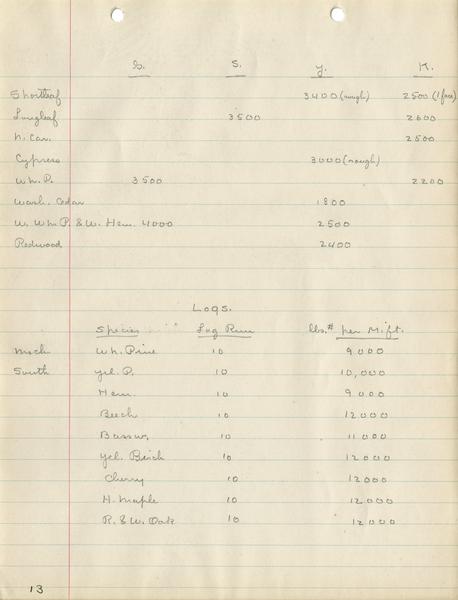 G. S. Y. K.
Shortleaf 3400 (rough) 2500 (1 face)
Longleaf 3500 2600
N. Car. 2500
Cypress 3000 (rough)
Wh. P. 3500 2200
Wash. Cedar 1800
W. Wh. P. & W. Hem. 4000 2500
Redwood 2400
Logs.
Species Log Run lbs.# per M. ft.
Mich Wh. Pine 10 9000
South Yel. P. 10 10,000
Hem. 10 9000
Beech 10 12000
Bassw. 10 11000
Yel. Birch 10 12000
Cherry 10 12000
H. Maple 10 12000
R. & W. Oak 10 12000
13